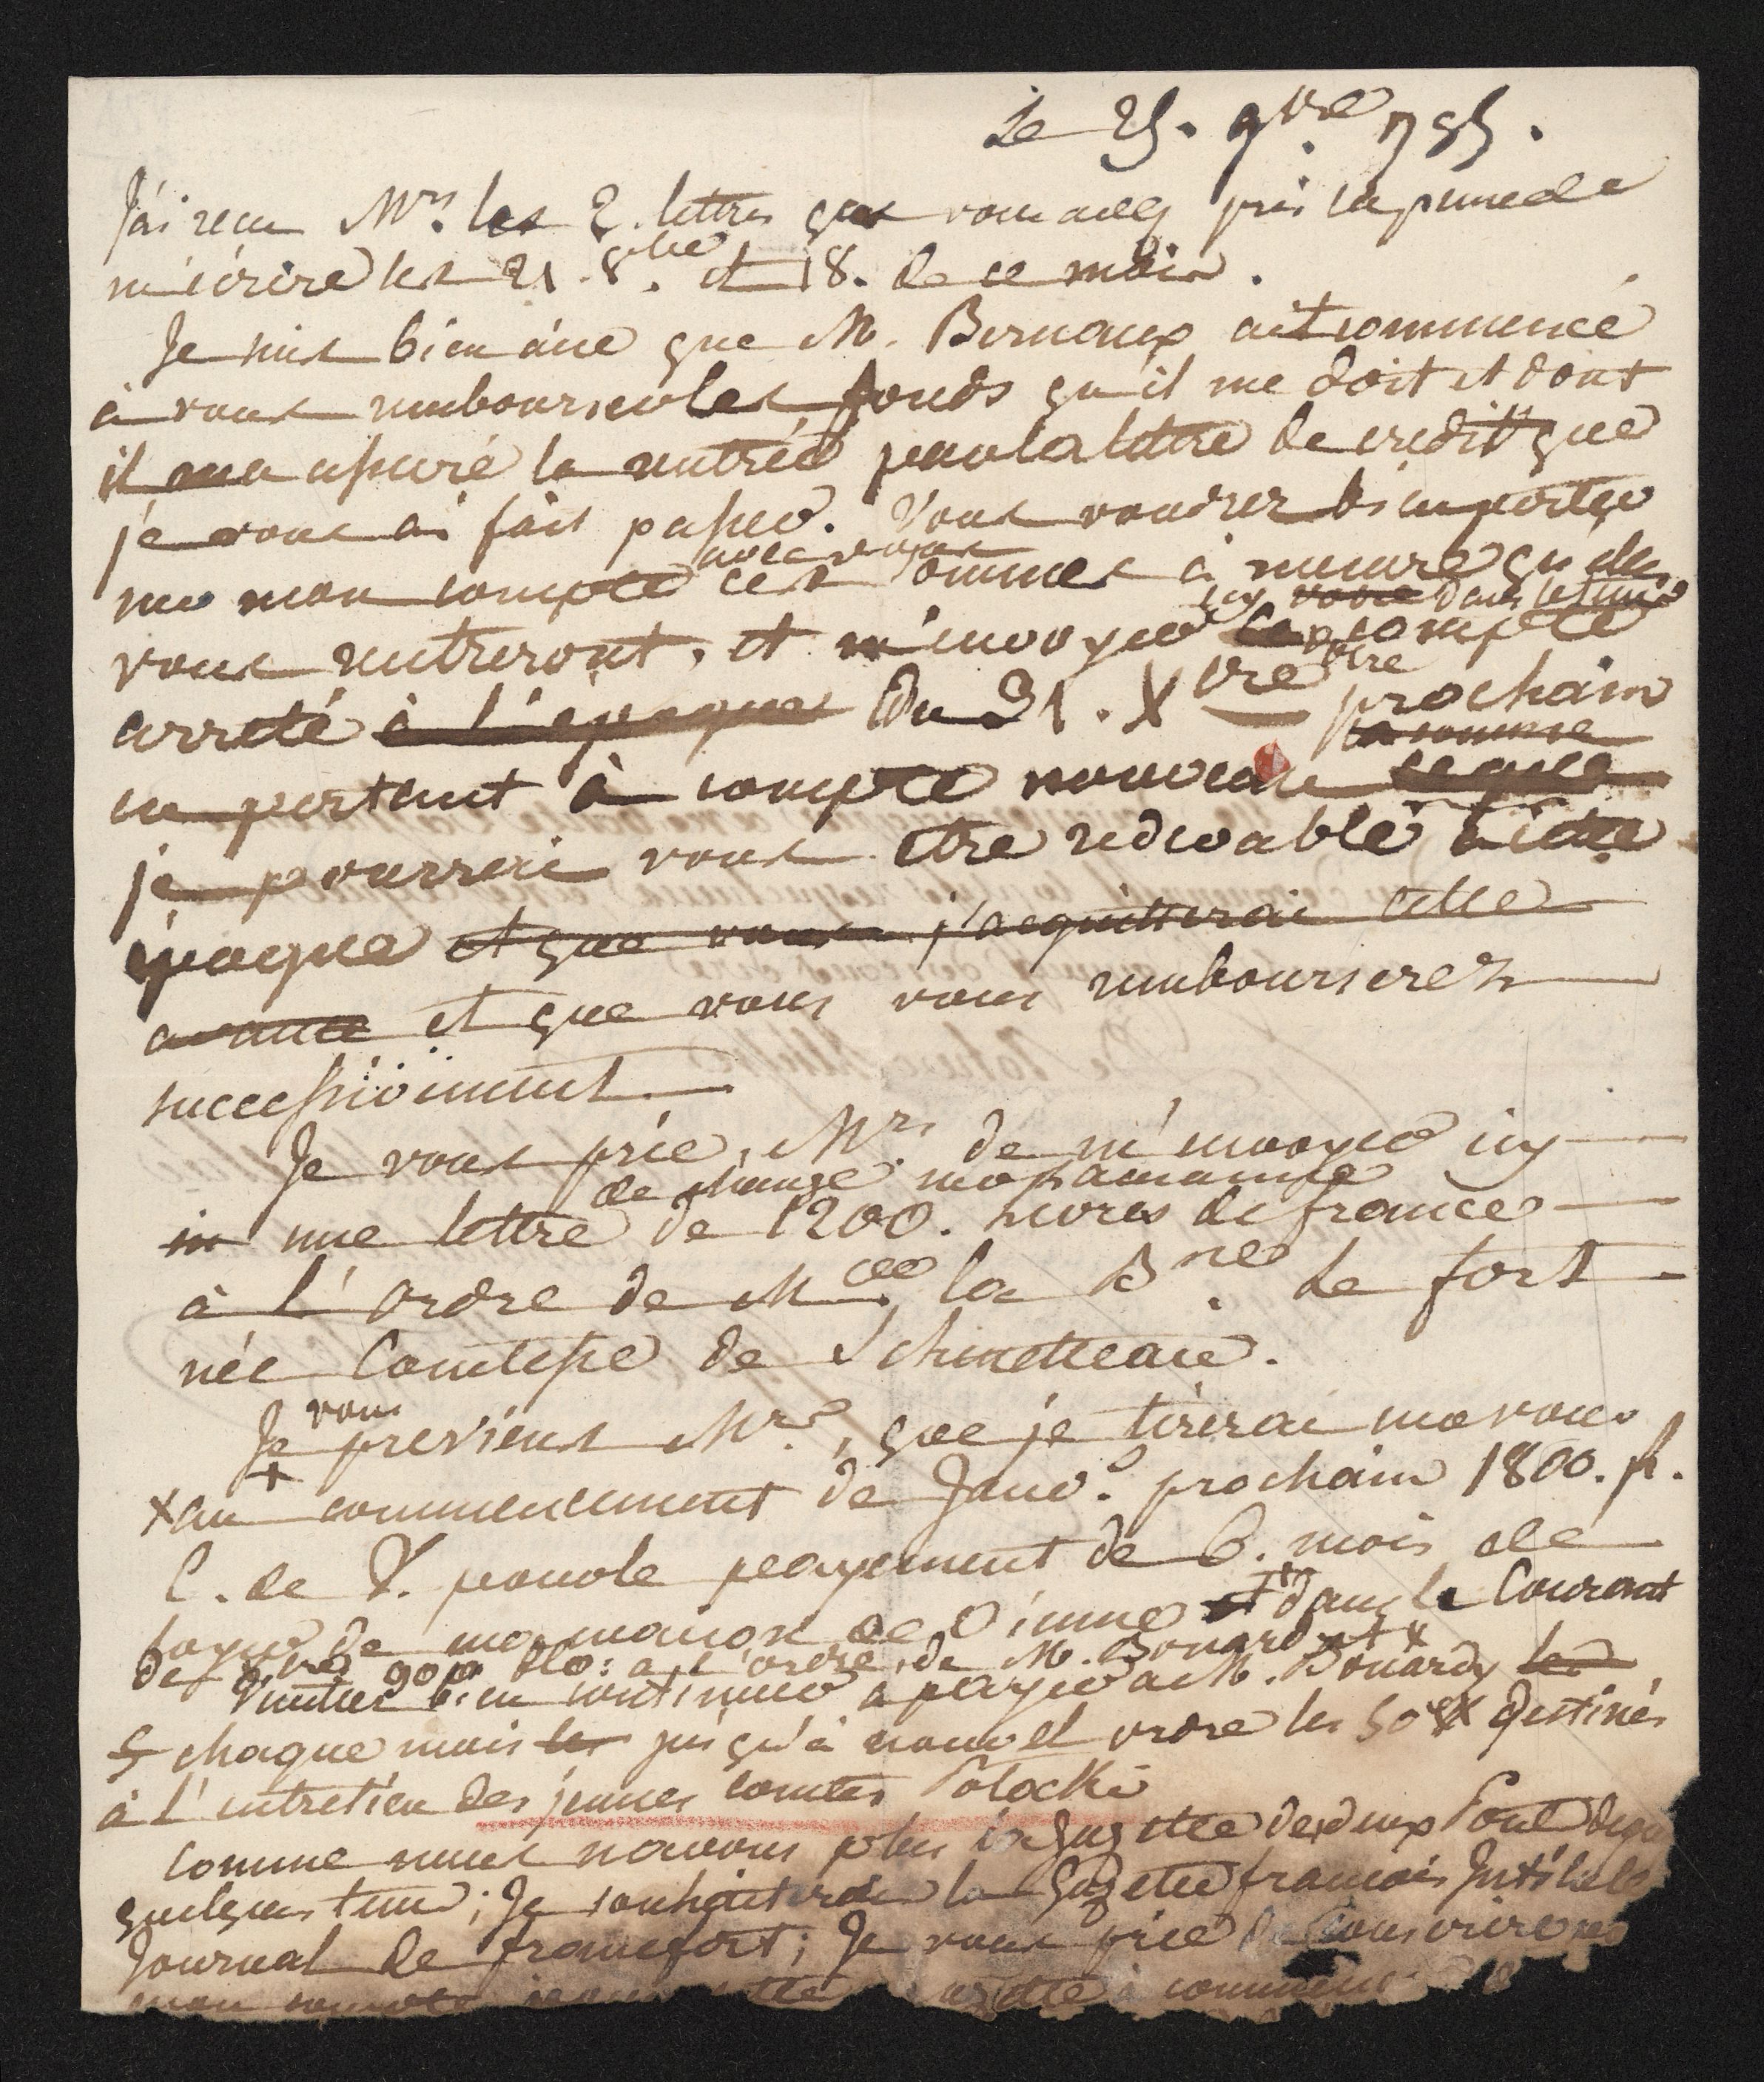 Le 25. 9bre 795.
J'ai recu Mrs. les 2. lettres que vous avez pris la peine de
m'écrire les 21. 8bre. et 18. de ce mois.
Je suis bien aise que M. Bernaux ait commencé
à vous rembourser les fonds qu'il me doit et dont
il m'a assuré la rentrée par la lettre de credit que
je vous ai fait passer. Vous voudrez bien porter
avec vous
sur mon compte ces sommes à mesure qu'elles
icy dans le tems
vous rentreront, et m'envoyer compte
votre
arreté à l'époque du 31. Xbre prochain
la somme
en portant à compte nouveau ce que
je pourrai vous etre redevable à cette
époque et que vous j'acquitterai cette
avance et que vous vous rembourserez
successivement
Je vous prie, Mrs. de m'envoyer icy
de change
une lettre de 1200. livres de france
à l'ordre de Mde. la Bne. Le fort
née Comtesse de Schmettau.
vous
Je previens Mrs., que je tirerai sur vous
+
+ au commencement de Janv. prochain 1800. fl.
C. de V. pour le payement de 6. mois de
loyer de ma maison de Vienne et dans le Courant
de 900 flo: a l'ordre de M. Bonard
Veuillez bien continuer a payer a M. Bonard
chaque mois les jusqu'à nouvel ordre les 50 # destinés
à l'entretien des jeunes comtes Potocki
Comme nous n'avons plus la Gazette de deux Pont depuis
quelques tems; Je souhaiterai la Gazette francais Intitulée
Journal de francfort; Je vous prie de souscrire
mon compte